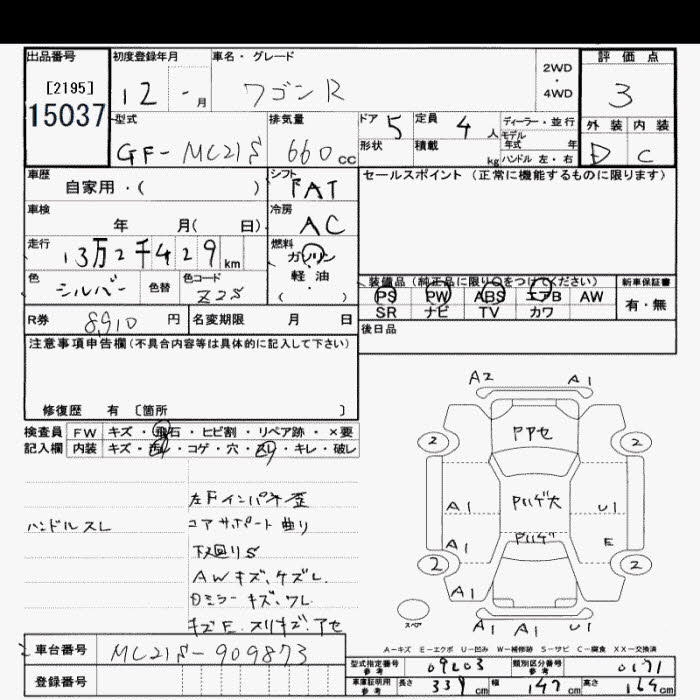 出品番号
[2195]
15037
初度登録年月
12 - 月
車名・グレード
ワゴンR
2WD
・
4WD
評価点
3
外装 内装
D C
型式
GF-MC21S
排気量
660 cc
ドア 5
形状
定員 4 人
積載 kg
ディーラー・並行
モデル
年式 年
ハンドル 左・右
車歴
自家用・( )
シフト
FAT
セールスポイント(正常に機能するものに限ります)
車検
年 月( 日)
冷房
AC
走行
13万2千429km
燃料
ガソリン
軽・油
( )
色
シルバー
色替
色コード
Z2S
装備品(純正品に限り○をつけてください)
PS PW ABS エアB AW
SR ナビ TV カワ
新車保証書
有・無
R券 8910 円
名変期限 月 日
後日品
注意事項申告欄(不具合内容等は具体的に記入して下さい)
修復歴 有 〔箇所 〕
検査員
記入欄
FW キズ・飛石・ヒビ割・リペア跡・×要
内装 キズ・汚れ・コゲ・穴・スレ・キレ・破レ
ハンドルスレ
左Fインパネ歪
コアサポート曲り
下廻りS
AWキズ、ケズレ
Dミラーキズ、ワレ
キズE、スリキズ、アセ
A2 A1
Pアセ
2 2
A1 Pハゲ大 U1
A1 Pハゲ E
2 2
A1 A1
A1 A1 U1
スペア
A-キズ E-エクボ U-凹み W-補修跡 S-サビ C-腐食 XX-交換済
車台番号 MC21S-909873
登録番号
型式指定番号
参考
類別区分番号
参考
車庫証明用
参考
長さ 339 cm
幅 147 cm
高さ 164 cm